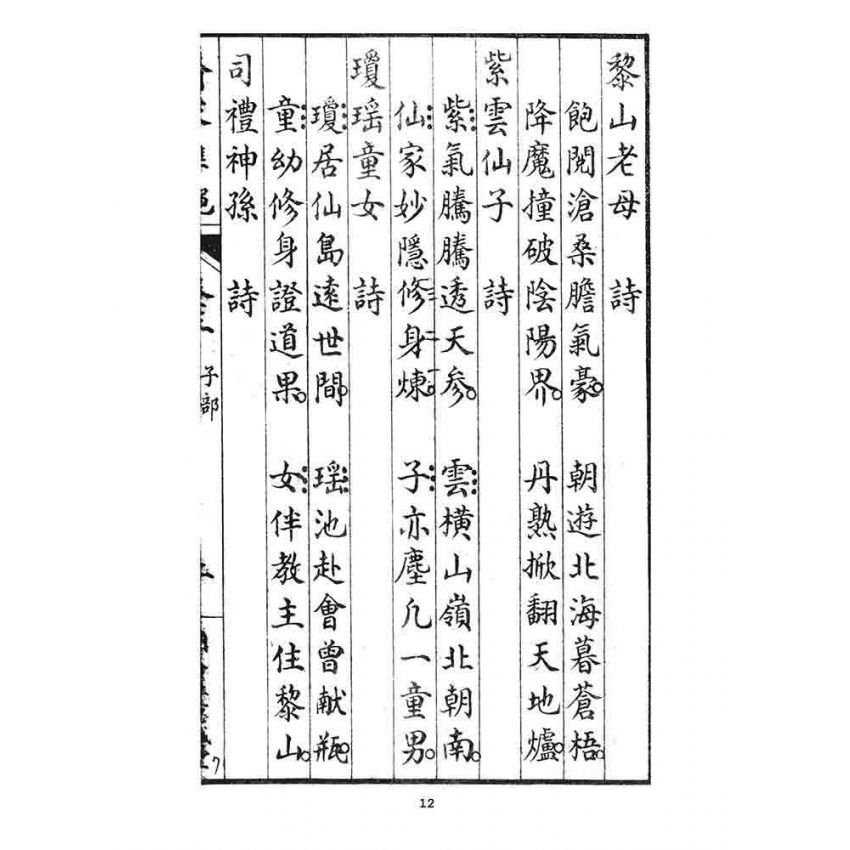 黎山老母　詩
飽閱滄桑膽氣豪。朝遊北海暮蒼梧。
降魔撞破陰陽界。丹熟掀翻天地爐。
紫雲仙子　詩
紫氣騰騰透天參。雲橫山嶺北朝南。
仙家妙隱修身煉。子亦塵凡一童男。
瓊瑶童女　詩
瓊居仙島遠世間。瑶池赴會曾献瓶。
童幼修身證道果。女伴教主住黎山。
司禮神孫　詩
子部
12